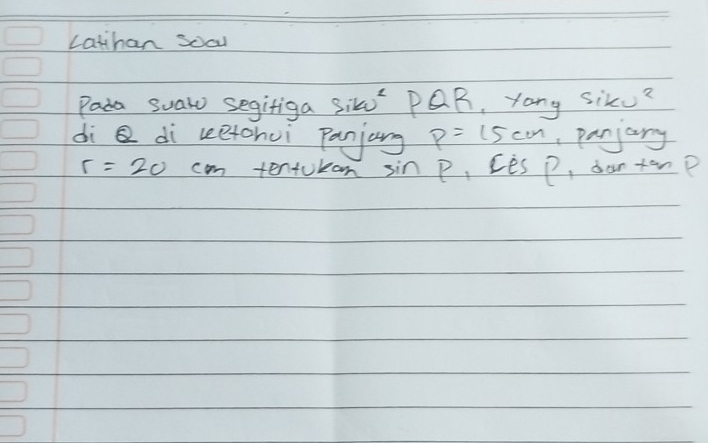 Latihan soal
Pada suatu segitiga siku² PQR, yang siku²
di Q di ketahui panjang P = 15 cm, panjang
r = 20 cm tentukan sin P, Cos P, dan tan P